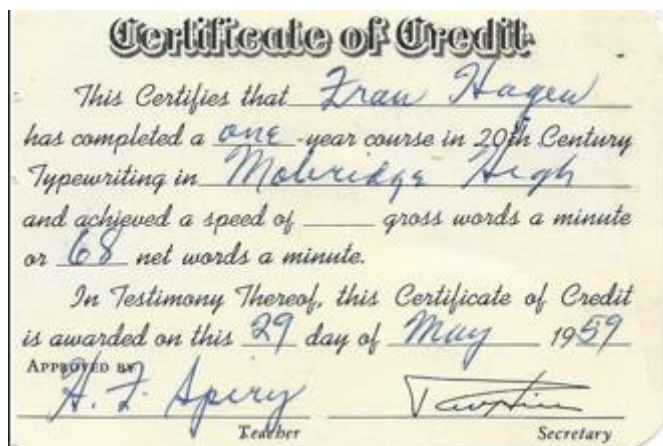 Certificate of Credit
This Certifies that Fran Hagen
has completed a one -year course in 20th Century
Typewriting in Mobridge High
and achieved a speed of ____ gross words a minute
or 68 net words a minute.
In Testimony Thereof, this Certificate of Credit
is awarded on this 29 day of May 1959
APPROVED BY
H. F. Spiry
Teacher Secretary